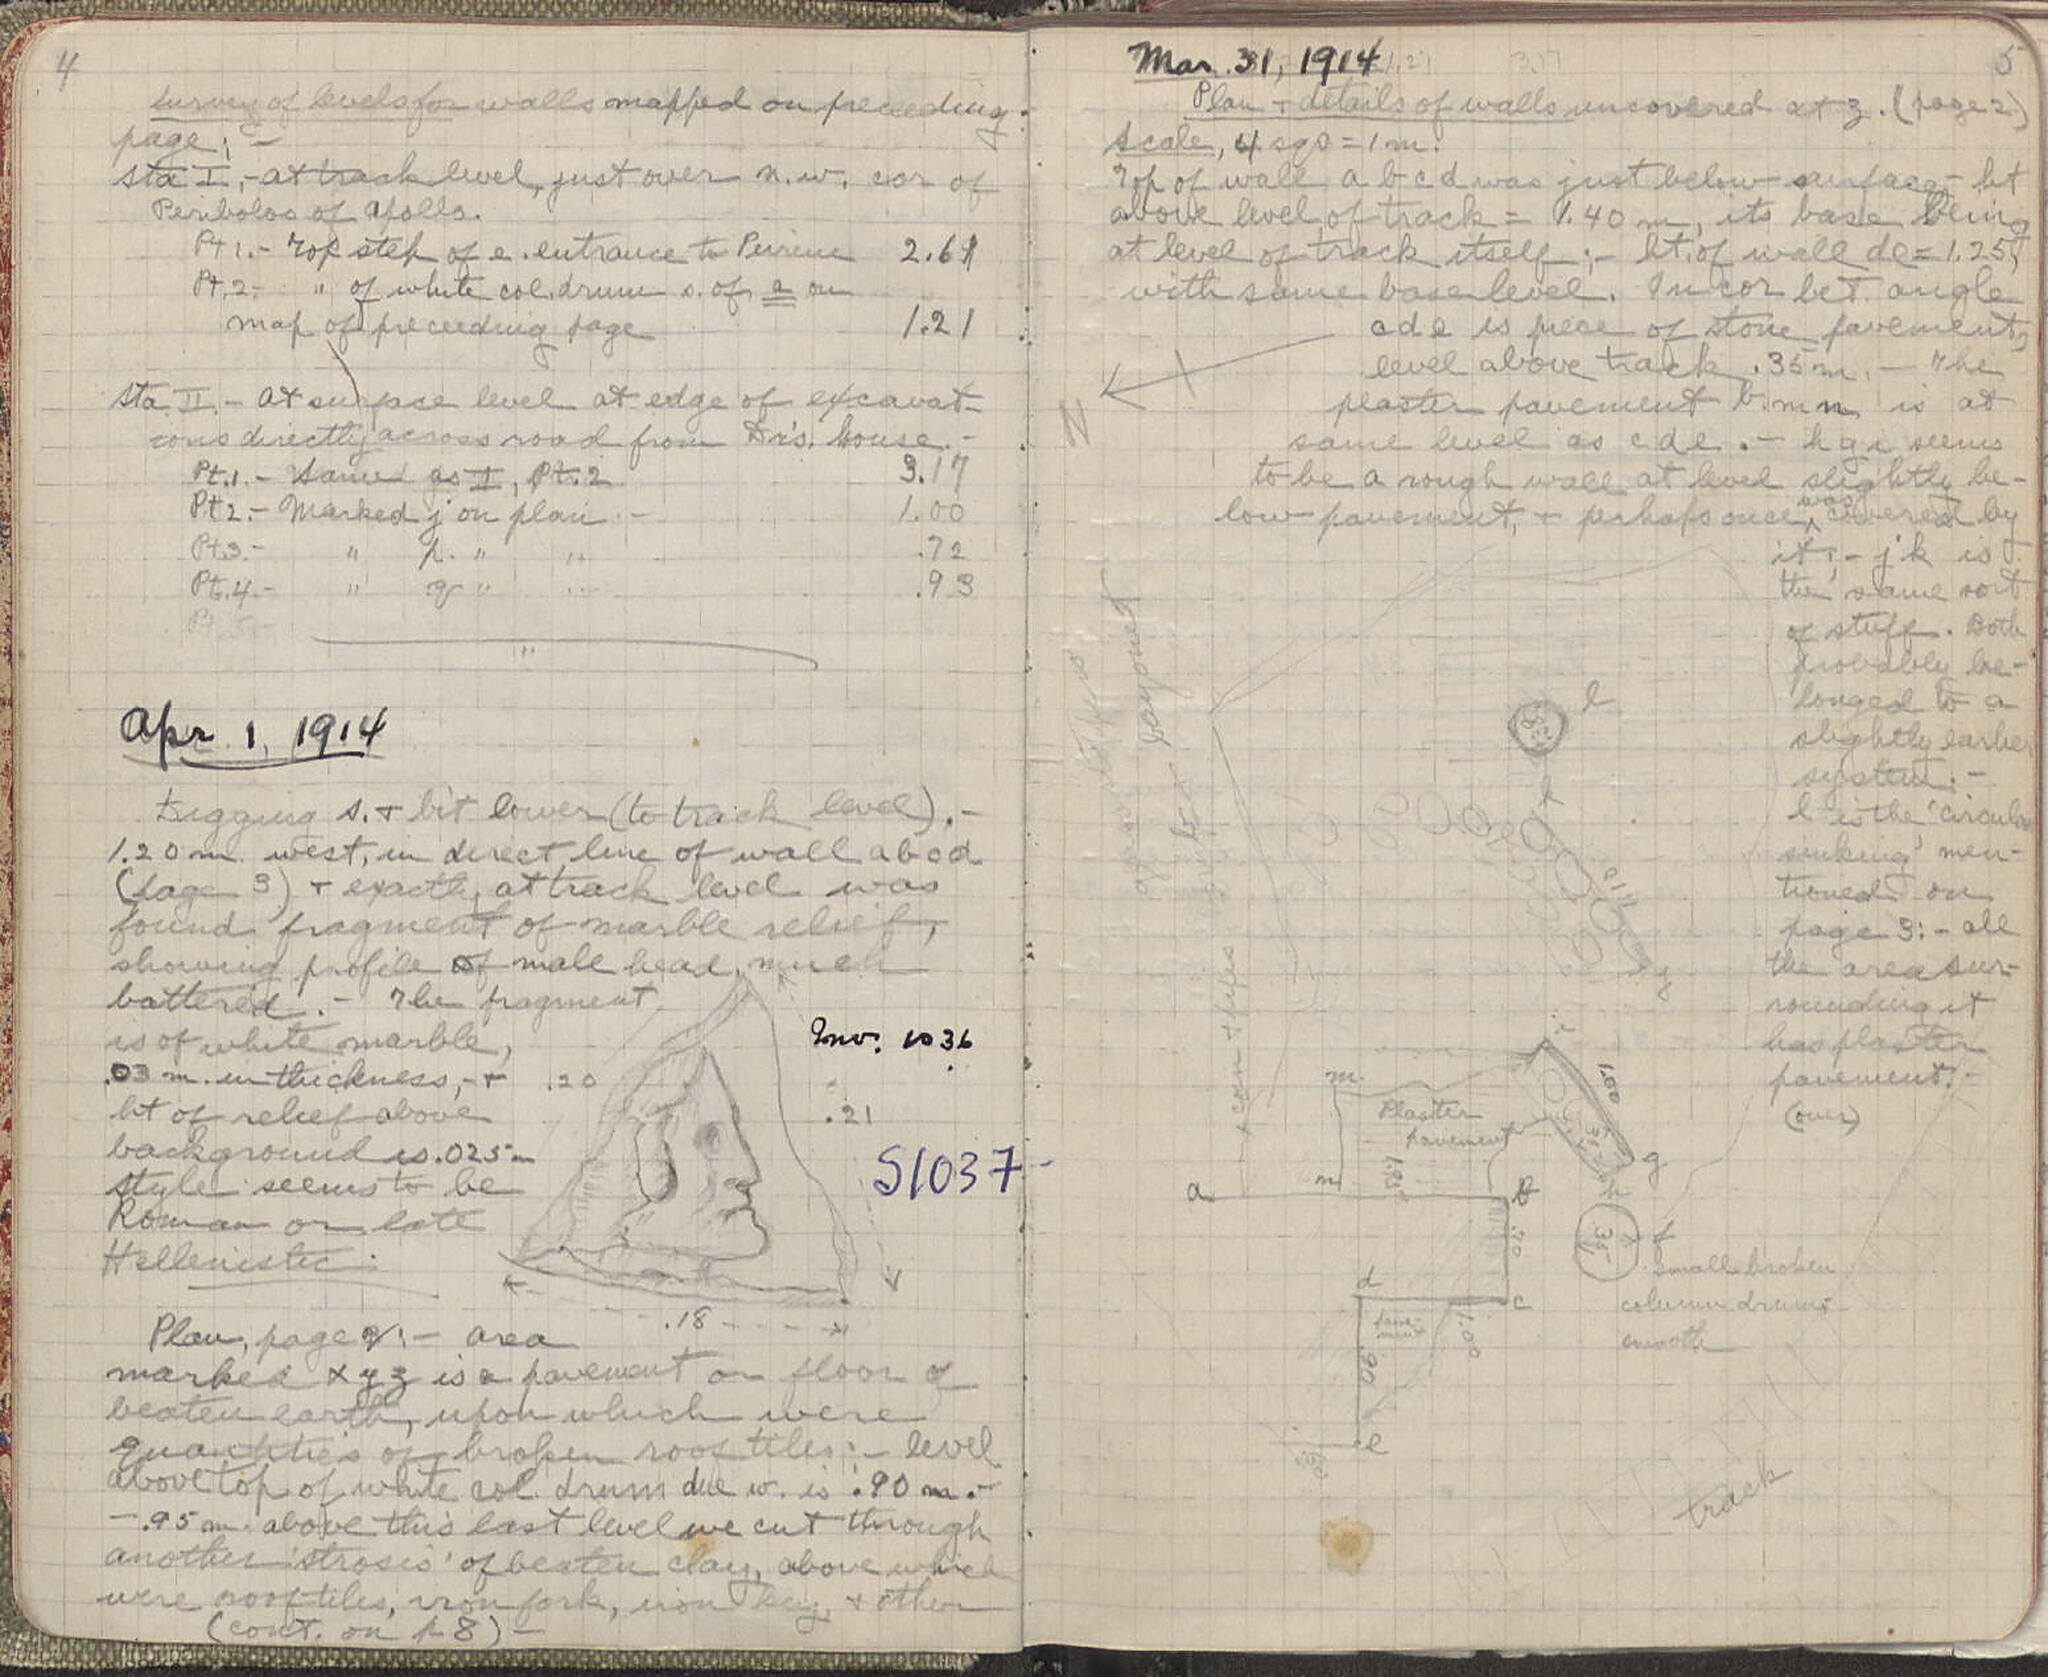 4
Survey of levels for walls mapped on preceeding
page; -
Sta I, - at track level, just over n.w. cor of
Peribolos of Apollo.
Pt 1. - Top step of e. entrance to Peirene 2.61
Pt. 2 - " of white col. drum s. of a on
map of preceeding page 1.21
Sta. II. - at surface level at edge of excavat-
ions directly across road from Dr's. house. -
Pt. 1. - Same as I, Pt. 2 3.17
Pt 2. - Marked j on plan. - 1.00
Pt. 3. - " p. " " .72
Pt. 4. - " q " " .93
Pt. 5 -
"
Apr. 1, 1914
Digging s. + bit lower (to track level). -
1.20 m west, in direct line of wall abcd
(page 3) + exactly at track level was
found fragment of marble relief,
showing profile of male head, much
battered. - The fragment
is of white marble,
.03 m. in thickness, - +
ht of relief above
background is .025 m
style seems to be
Roman or late
Hellenistic:
.20
.21
.18
Inv. 1036
S1037
Plan, page 2: - area
marked x y z is a pavement or floor of
beaten earth, upon which were
quantities of broken roof tiles: - level
above top of white col. drum due w. is .90 m. -
- .95 m. above this last level we cut through
another 'strosis' of beaten clay, above which
were rooftiles, iron fork, iron key, + other
(cont. on p 8) -
5
Mar. 31, 1914
Plan + details of walls uncovered at z. (page 2)
Scale, 4 sqs = 1 m.
Top of wall a b c d was just below surface, - ht
above level of track = 1.40 m, its base being
at level of track itself; - ht. of wall de = 1.25,
with same base level. In cor bet. angle
c d e is piece of stone pavement,
level above track .35 m. - The
plaster pavement b m n is at
same level as c d e. - h g i seems
to be a rough wall at level slightly be-
low pavement, + perhaps once was covered by
it; - j k is
the same sort
of stuff. Both
probably be-
longed to a
slightly earlier
system. -
l is the 'circular
sinking' men-
tioned on
page 3: - all
the area sur-
rounding it
has plaster
pavement. -
(over)
N
bayonet
+ coin + lepis
l
k
j
i
1.00
m
Plaster
pavement
g
h
a
n
b
.70
35
f
Small broken
column drum,
smooth
d
c
pave-
ment
1.00
.90
e
track